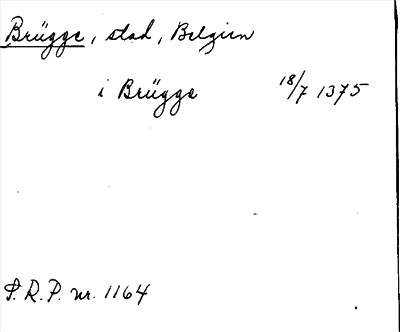 Brügge, stad, Belgien
i Brügge 18/7 1375
S.R.P. nr. 1164